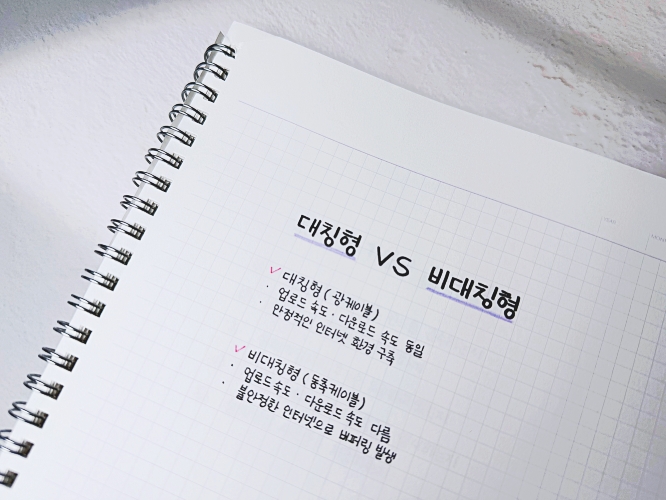 대칭형 VS 비대칭형
✓ 대칭형 (광케이블)
· 업로드 속도 · 다운로드 속도 동일
· 안정적인 인터넷 환경 구축
✓ 비대칭형 (동축케이블)
· 업로드 속도 · 다운로드 속도 다름
· 불안정한 인터넷으로 버퍼링 발생